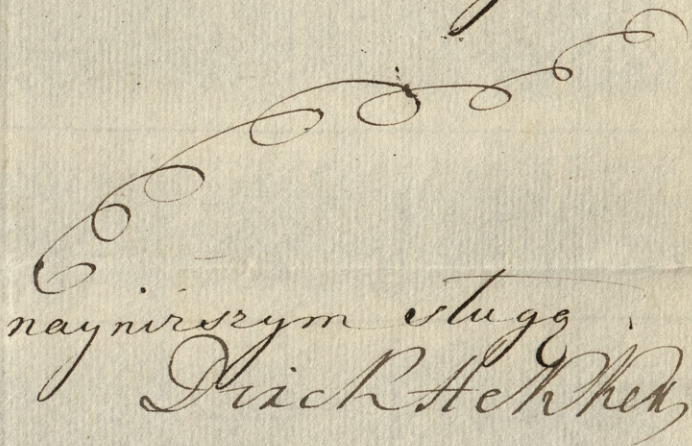 naynirszym sługą
Dirck Hekker